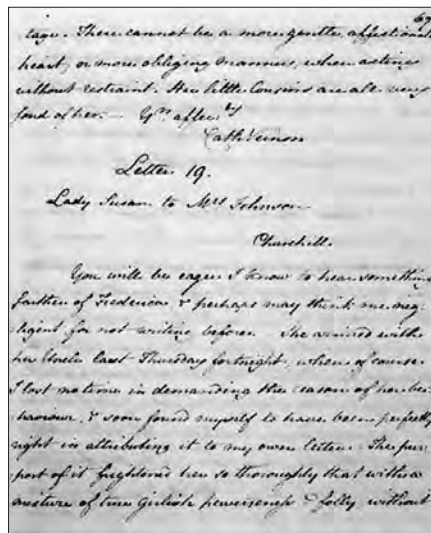 69
tage. There cannot be a more gentle, affectionate
heart, or more obliging manners, when acting
without restraint. Her little Cousins are all very
fond of her. — Yrs affecly
Cath Vernon
Letter 19.
Lady Susan to Mrs Johnson
Churchill.
You will be eager I know to hear something
farther of Frederica & perhaps may think me neg-
ligent for not writing before. She arrived with
her Uncle last Thursday fortnight, when of course
I lost no time in demanding the reason of her be-
haviour, & soon found myself to have been perfectly
right in attributing it to my own letter. The pur-
port of it frightened her so thoroughly that with a
mixture of true Girlish perverseness & folly, without